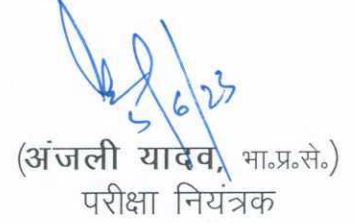 5/6/23
(अंजली यादव, भा.प्र.से.)
परीक्षा नियंत्रक